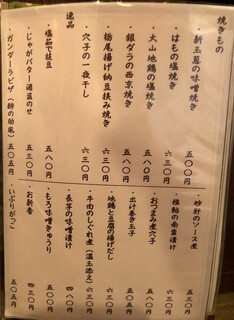 焼きもの
・新玉葱の味噌焼き 五〇〇円
・はもの塩焼き 六三〇円
・大山地鶏の塩焼き 五八〇円
・銀ダラの西京焼き 五八〇円
・栃尾揚げ納豆挟み焼き 六三〇円
・穴子の一夜干し 六三〇円
逸品
・塩茹で枝豆 五八〇円
・じゃがバター酒盗のせ 五三〇円
・ガンダーラピザ 五〇五円
・砂肝のソース煮 五三〇円
・稚鮎の南蛮漬け
・おつまみ煮穴子 五八〇円
・出汁巻き玉子
・地鶏と豆腐の揚げだし 六三〇円
・牛肉のしぐれ煮（温玉添え） 六三〇円
・長芋の味噌漬け 四八〇円
・もろ味噌きゅうり 五三〇円
・お新香 四三〇円
・いぶりがっこ 五〇五円